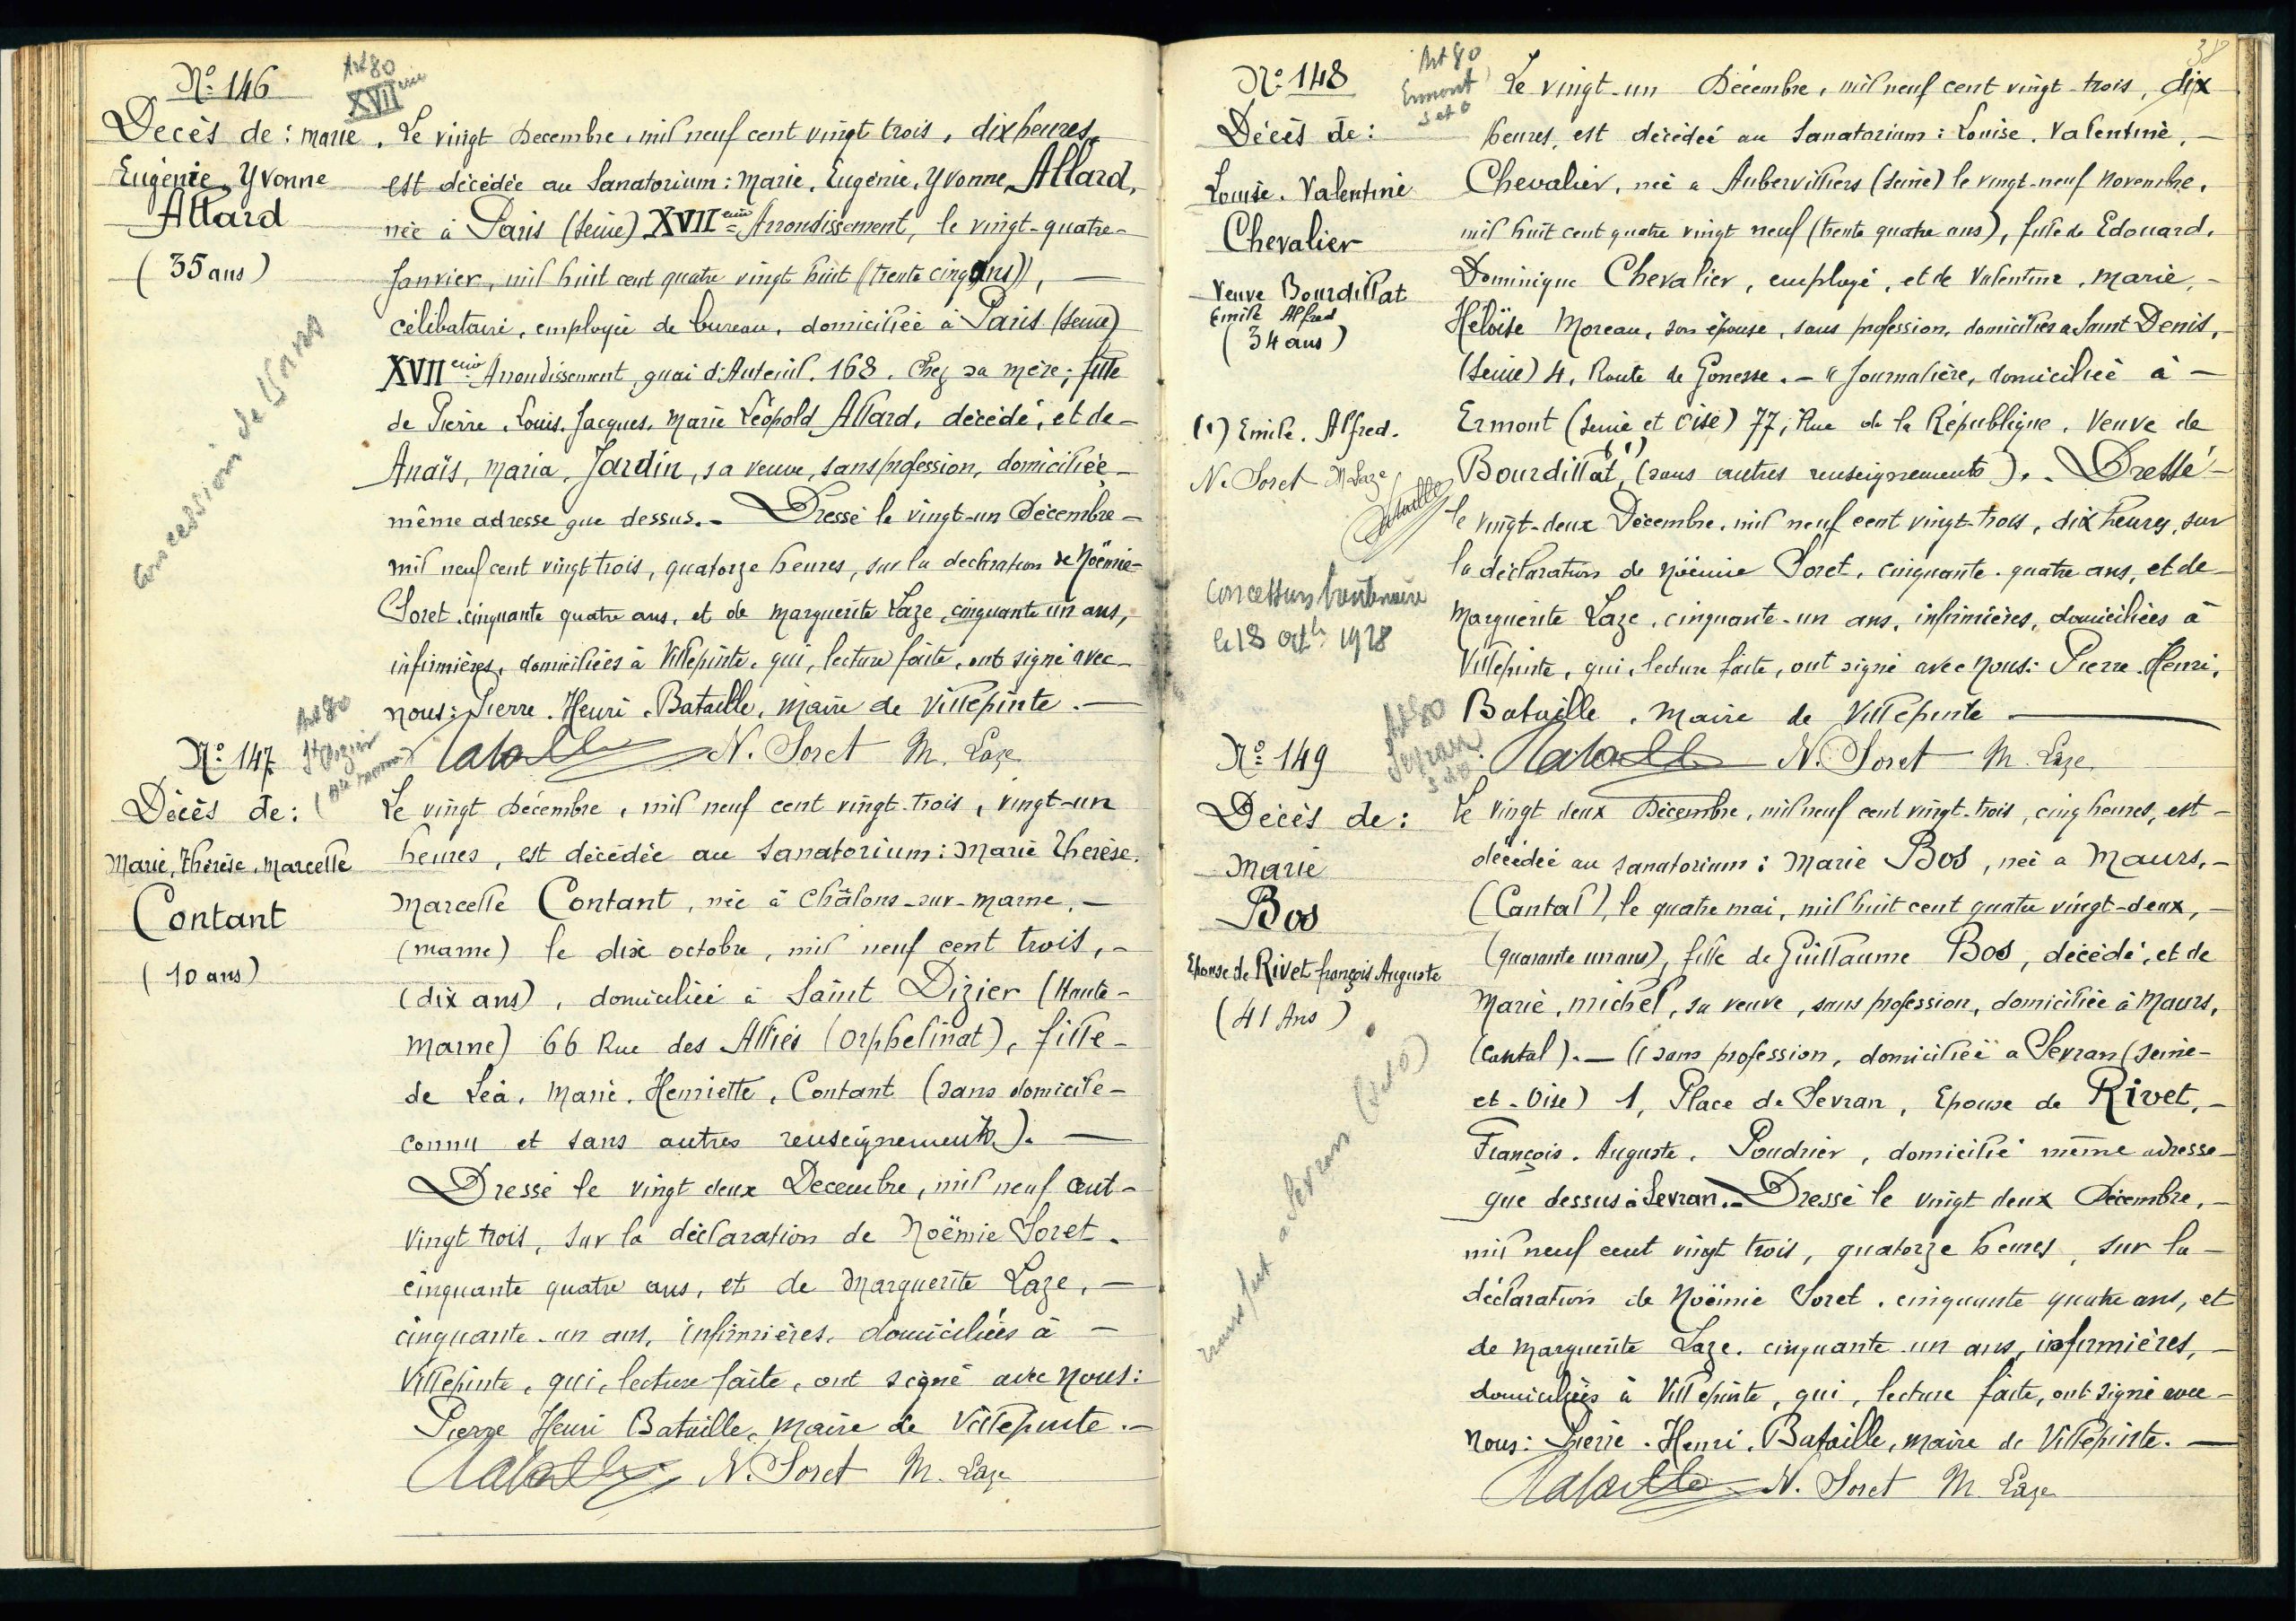 Nº 146
Art 80
XVIIème
Décès de : Marie,
Eugénie, Yvonne
Allard
(35 ans)
Concession de 15 ans
Le vingt Décembre, mil neuf cent vingt trois, dix heures,
est décédée au Sanatorium : Marie, Eugénie, Yvonne Allard,
née à Paris (Seine) XVIIème Arrondissement, le vingt-quatre-
Janvier, mil huit cent quatre vingt huit (trente cinq ans), —
célibataire, employée de bureau, domiciliée à Paris (Seine)
XVIIème Arrondissement, quai d'Auteuil. 168. Chez sa mère; fille
de Pierre, Louis, Jacques, Marie Léopold Allard, décédé, et de-
Anaïs, Maria, Jardin, sa veuve, sans profession, domiciliée-
même adresse que dessus.- Dressé le vingt-un Décembre-
mil neuf cent vingt trois, quatorze heures, sur la déclaration de Noëmie-
Soret, cinquante quatre ans, et de Marguerite Laze, cinquante un ans,
infirmières, domiciliées à Villepinte, qui, lecture faite, ont signé avec-
nous: Pierre. Henri. Bataille, Maire de Villepinte. —
Bataille N. Soret M. Laze
Nº 147
Art 80
St Dizier
(Hte Marne)
Décès de :
Marie, Thérèse, Marcelle
Contant
(10 ans)
Le vingt Décembre, mil neuf cent vingt-trois, vingt-un
heures, est décédée au Sanatorium : Marie Thérèse.
Marcelle Contant, née à Châlons-sur-Marne, —
(Marne) le dix octobre, mil neuf cent trois, -
(dix ans), domiciliée à Saint Dizier (Haute-
Marne) 66 Rue des Alliés (Orphelinat), fille-
de Léa, Marie, Henriette, Contant (sans domicile-
connu et sans autres renseignements). —
Dressé le vingt deux Décembre, mil neuf cent-
vingt trois, sur la déclaration de Noëmie Soret.
cinquante quatre ans, et de Marguerite Laze, —
cinquante-un ans, infirmières, domiciliées à —
Villepinte, qui, lecture faite, ont signé avec nous:
Pierre Henri Bataille, Maire de Villepinte.-
Bataille N. Soret M. Laze
38
Nº 148
Art 80
Ermont
S et O
Décès de :
Louise. Valentine
Chevalier
Veuve Bourdillat
Emile Alfred
(34 ans)
(1) Emile. Alfred.
N. Soret M Laze
Bataille
Concession trentenaire
le 18 Oct. 1928
Le vingt-un Décembre, mil neuf cent vingt-trois, dix
heures, est décédée au Sanatorium : Louise. Valentine, —
Chevalier, née à Aubervilliers (Seine) le vingt-neuf Novembre,
mil huit cent quatre vingt neuf (trente quatre ans), fille de Edouard,
Dominique Chevalier, employé, et de Valentine, Marie, -
Héloïse Moreau, son épouse, sans profession, domiciliés à Saint Denis, -
(Seine) 4, Route de Gonesse. — " Journalière, domiciliée à —
Ermont (Seine et Oise) 77, Rue de la République. Veuve de
Bourdillat (1), (sans autres renseignements). Dressé-
le vingt-deux Décembre, mil neuf cent vingt-trois, dix heures, sur
la déclaration de Noëmie Soret, cinquante-quatre ans, et de
Marguerite Laze, cinquante-un ans, infirmières, domiciliées à
Villepinte, qui, lecture faite, ont signé avec nous: Pierre. Henri.
Bataille, Maire de Villepinte —
Bataille N. Soret M. Laze
Nº 149
Art 80
Sevran
S et O
Décès de :
Marie
Bos
Epouse de Rivet françois Auguste
(41 Ans)
transfert à Sevran (S et O)
Le vingt deux Décembre, mil neuf cent vingt-trois, cinq heures, est -
décédée au sanatorium : Marie Bos, née à Maurs, -
(Cantal), le quatre mai, mil huit cent quatre vingt-deux, -
(quarante un ans), fille de Guillaume Bos, décédé, et de
Marie, Michel, sa veuve, sans profession, domiciliée à Maurs,
(Cantal). — (sans profession, domiciliée à Sevran (Seine-
et-Oise) 1, Place de Sevran, Epouse de Rivet, -
François. Auguste. Poudrier, domicilié même adresse-
que dessus à Sevran.- Dressé le vingt deux Décembre, -
mil neuf cent vingt trois, quatorze heures, sur la -
déclaration de Noëmie Soret, cinquante quatre ans, et
de Marguerite Laze, cinquante un ans, infirmières, -
domiciliées à Villepinte, qui, lecture faite, ont signé avec-
nous: Pierre. Henri. Bataille, Maire de Villepinte. —
Bataille N. Soret M. Laze